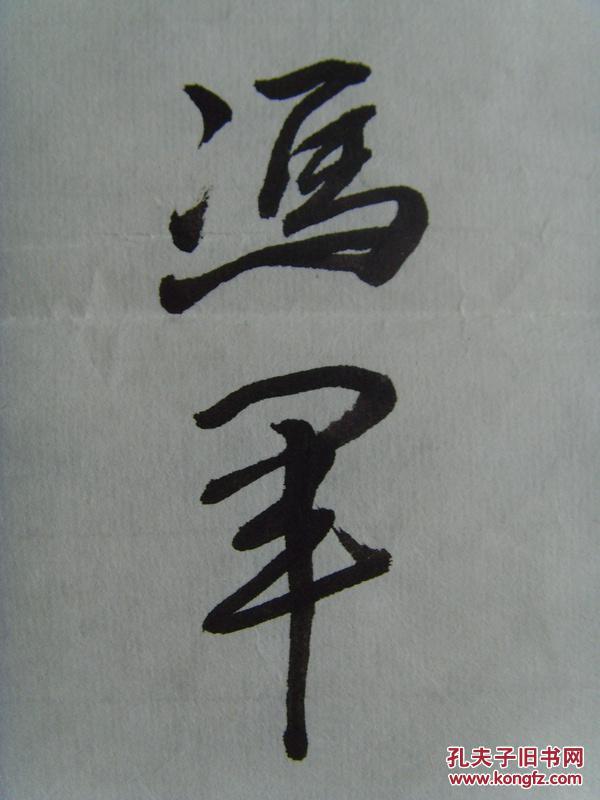 冯军
孔夫子旧书网
www.kongfz.com